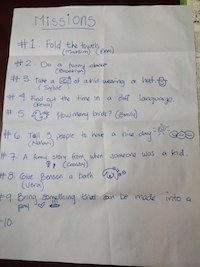 Missions
#1. Fold the towels
#2. Do a funny dance
(Brooklyn)
#3. Take a of a kid wearing a hat
#4 Find out the time in a diff language.
#5 How many birds? (Emily)
#6. Tell 5 people to have a nice day
#7. A funny story from when someone was a kid.
#8. Give Benson a bath
(Vera)
#9. Bring something that can be made into a
#10.